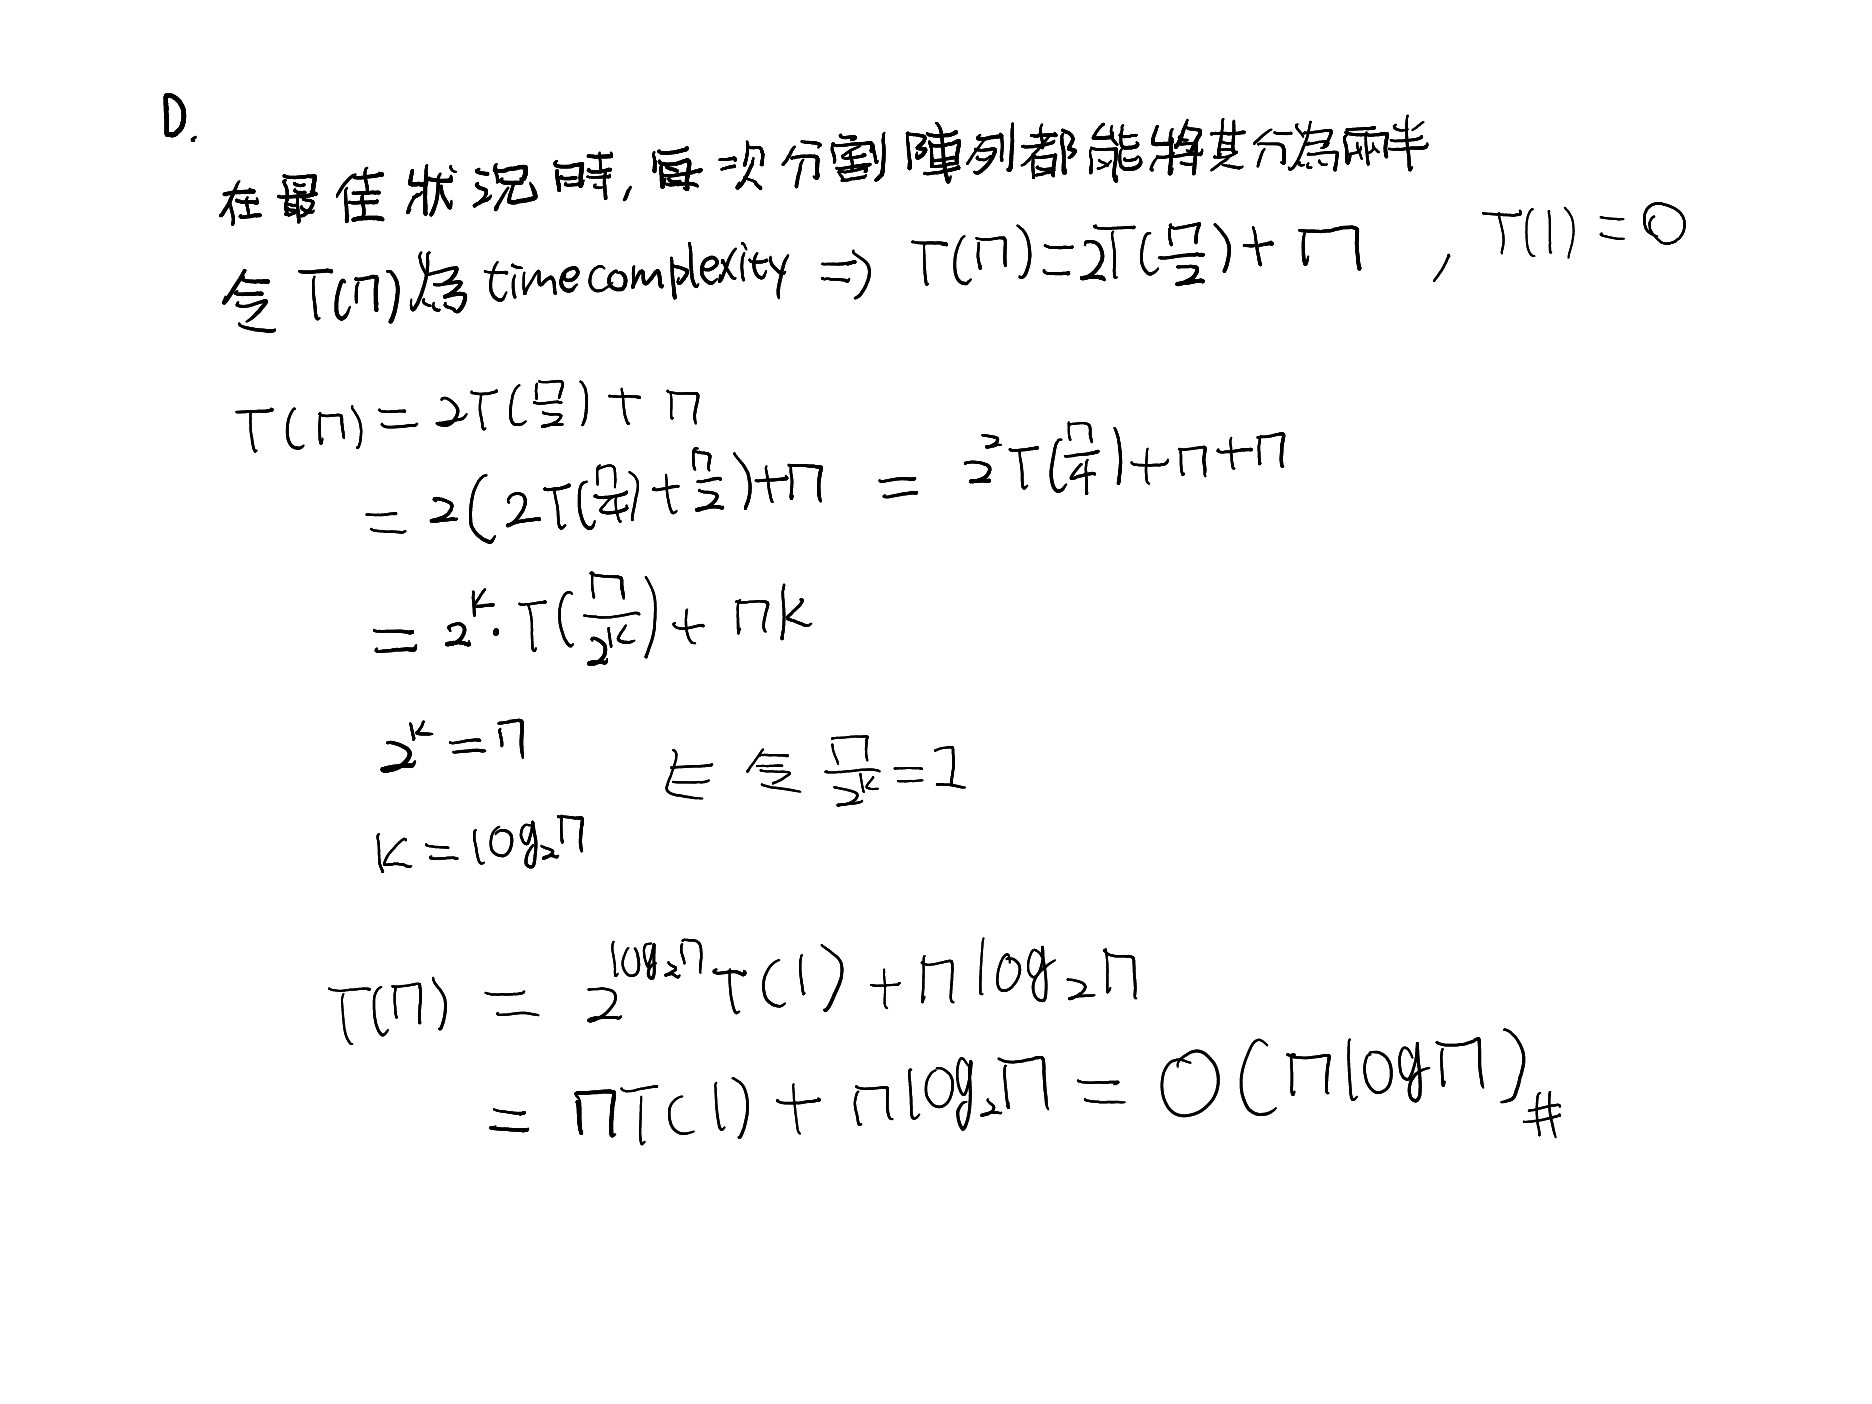 D.
在最佳狀況時,每次分割陣列都能將其分為兩半
令T(n)為timecomplexity ⇒ T(n)=2T(n/2)+n , T(1)=0
T(n)=2T(n/2)+n
=2(2T(n/4)+n/2)+n = 2²T(n/4)+n+n
=2^k·T(n/2^k)+nk
2^k=n ⇐ 令 n/2^k=1
k=log₂n
T(n) = 2^(log₂n) T(1)+n log₂n
= nT(1)+n log₂n = O(n log n)#